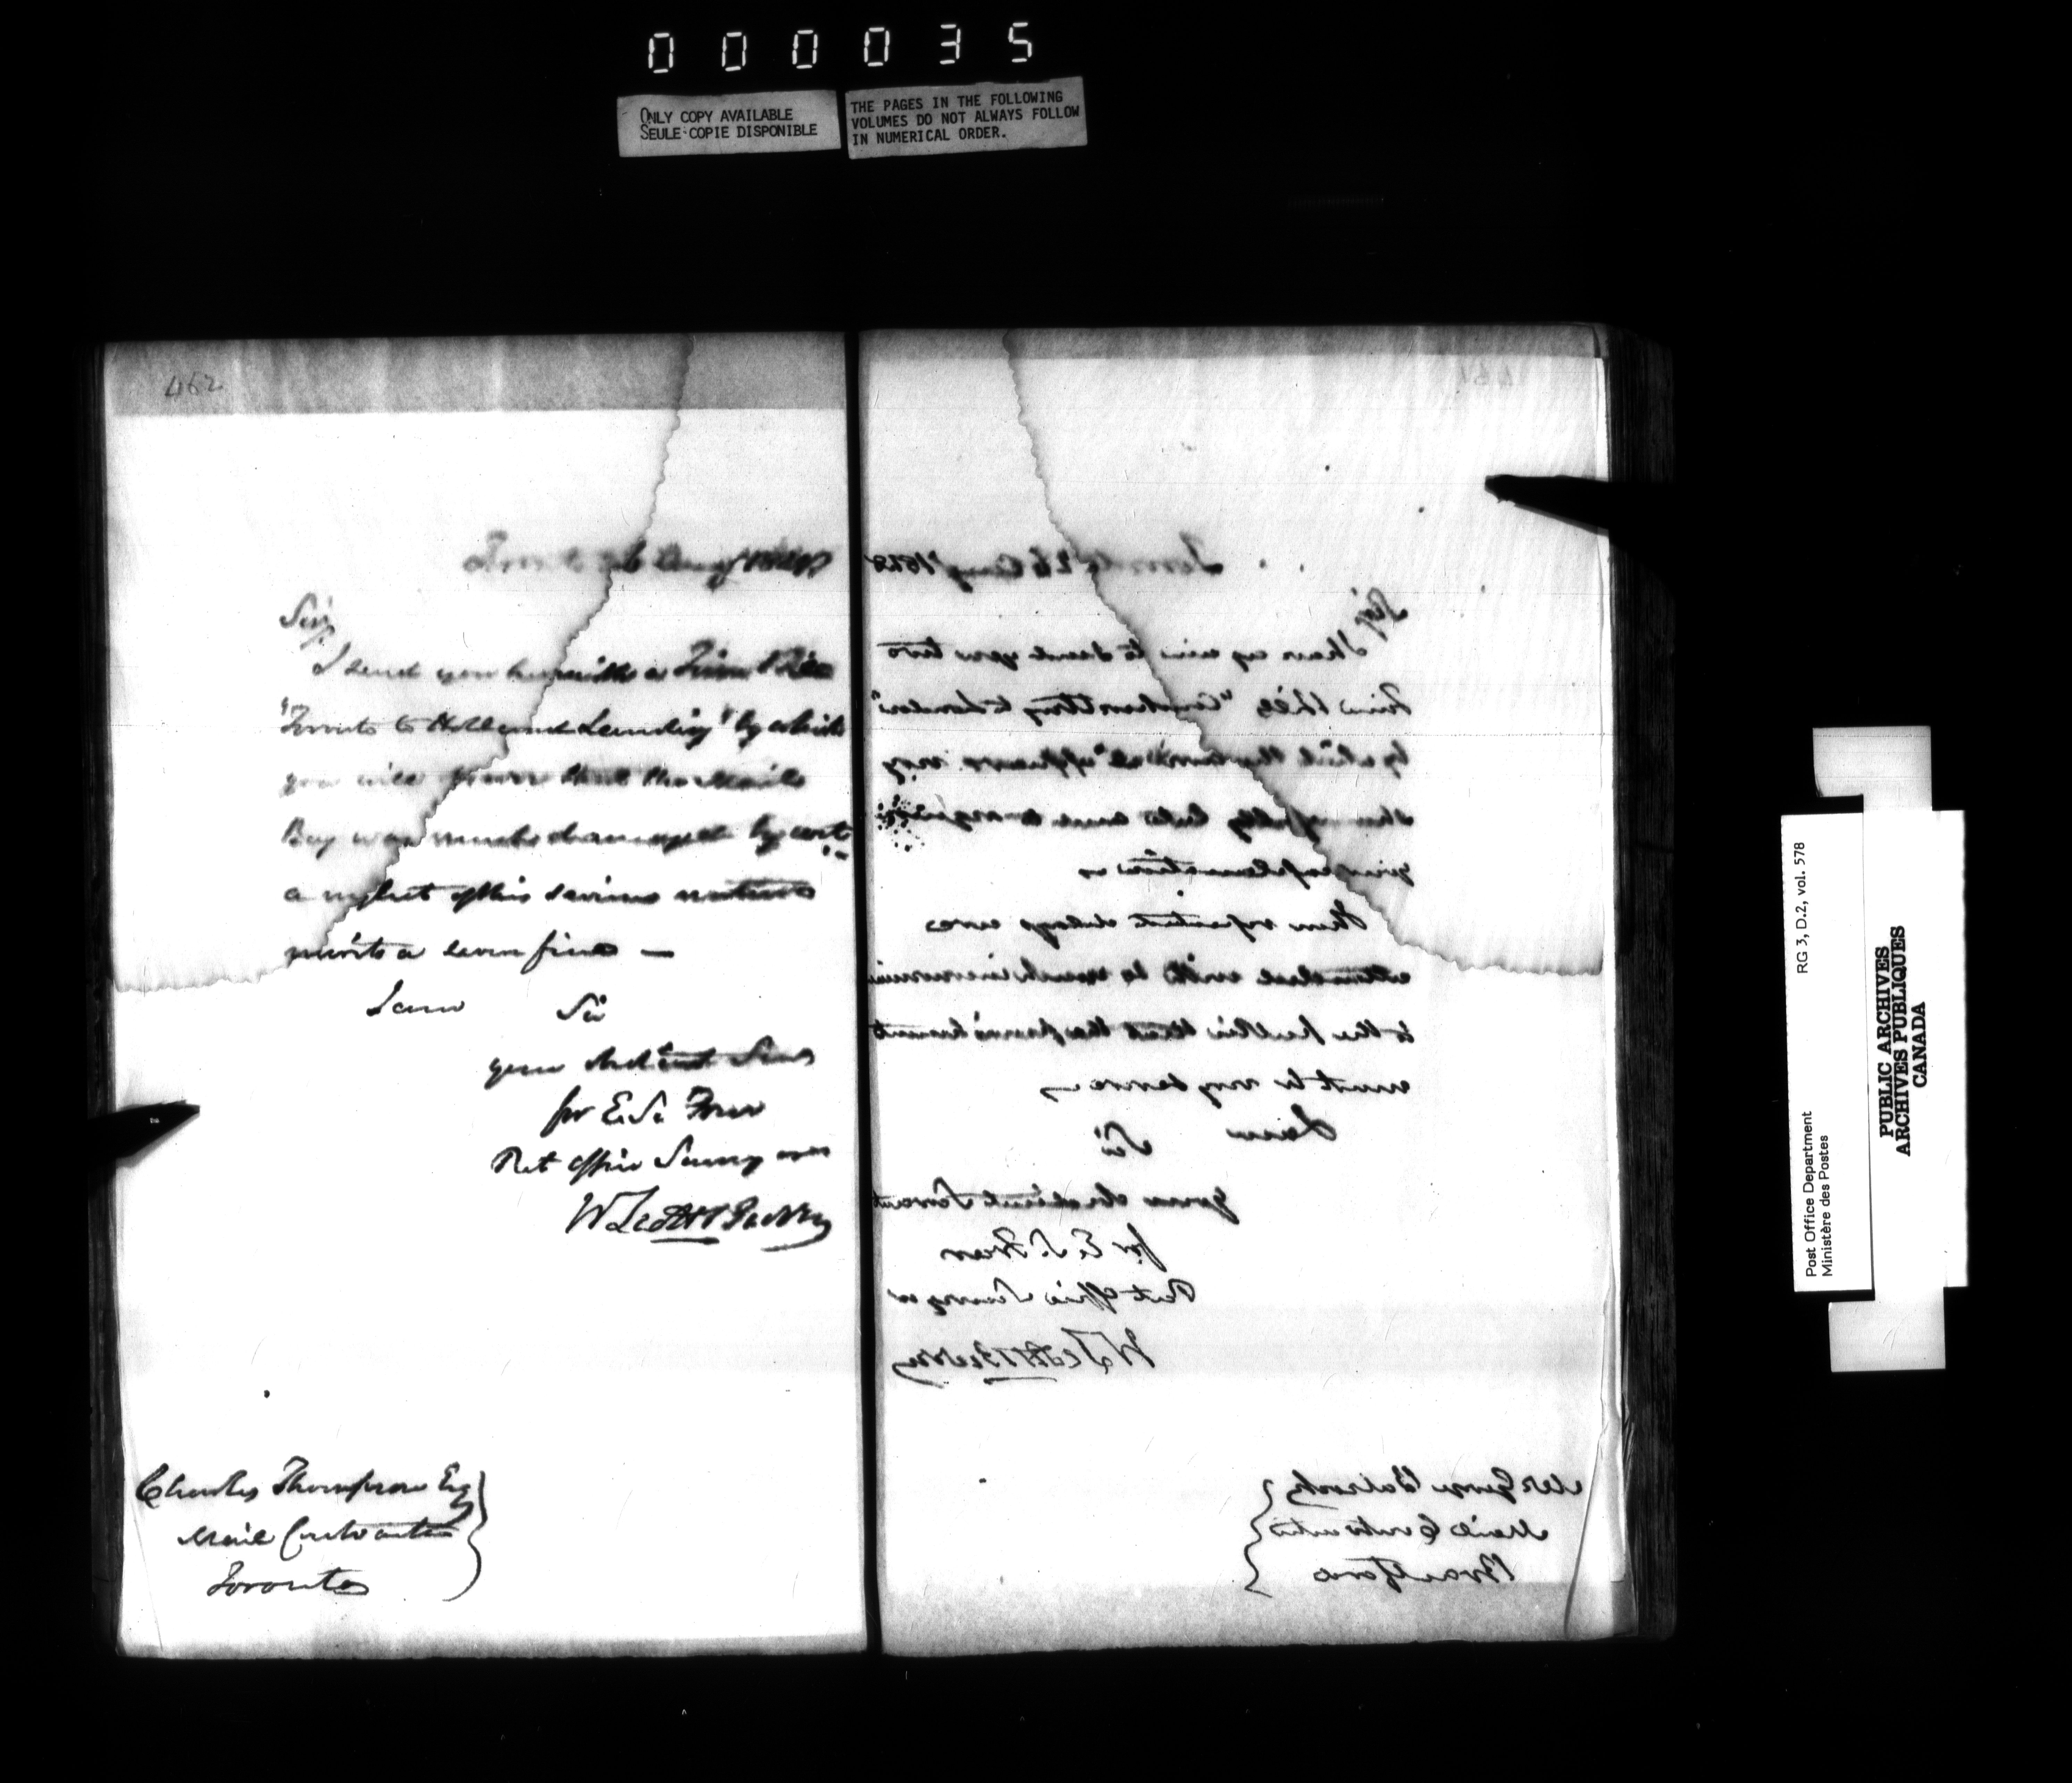 000035
ONLY COPY AVAILABLE
SEULE COPIE DISPONIBLE
THE PAGES IN THE FOLLOWING
VOLUMES DO NOT ALWAYS FOLLOW
IN NUMERICAL ORDER.
462
Toronto 26 Augt 1848
Sir,
I send you herewith a Time Bill
"Toronto to Holland Landing" by which
you will that the Mail
Bag was much damaged by wet
a neglect of this serious nature
merits a severe fine —
I am Sir
your obedient Servt
for E. S. Freer
Post office Surveyor
Charles Thompson Esq
Mail Contractor
Toronto
461
Toronto 26 Augt 1848
Sir,
to send you two
Time Bills to London"
by which the arrival appears very
late and
explanation
repeated delays are
attended with so much
to the public that the punishment
must be very severe
I am
Sir
your obedient Servant
for E. S. Freer
Post office Surveyor
Mr George
Mail Contractor
Brantford
Post Office Department
Ministère des Postes
RG 3, D.2, vol. 578
PUBLIC ARCHIVES
ARCHIVES PUBLIQUES
CANADA